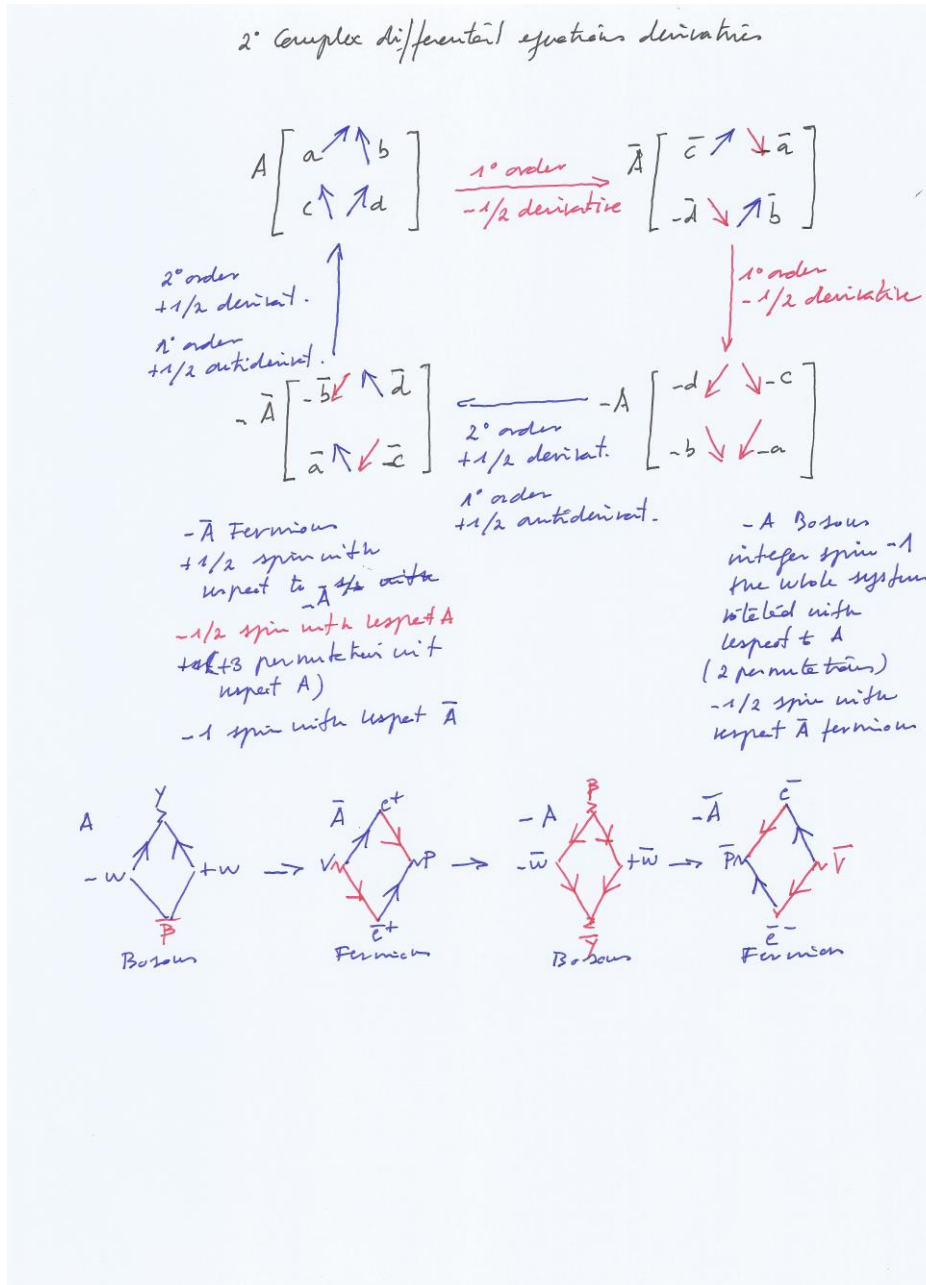 2° Complex differential equations derivatives
A [ a b
c d ]
1° order
-1/2 derivative
Ā [ c̄ -ā
-d̄ b̄ ]
1° order
-1/2 derivative
2° order
+1/2 derivat.
1° order
+1/2 antiderivat.
-Ā [ -b̄ d̄
ā -c̄ ]
2° order
+1/2 derivat.
1° order
+1/2 antiderivat.
-A [ -d -c
-b -a ]
-Ā Fermions
+1/2 spin with
respect to -A
-1/2 spin with respect A
(+3 permutation wit
respect A)
-1 spin with respect Ā
-A Bosons
integer spin -1
the whole system
rotated with
respect to A
(2 permutations)
-1/2 spin with
respect Ā fermions
A
γ
-w +w
Bosons
Ā
e+
ν P
ē+
Fermions
-A
β
-w̄ +w̄
Bosons
-Ā
e̅-
P̄ V̄
ē-
Fermions